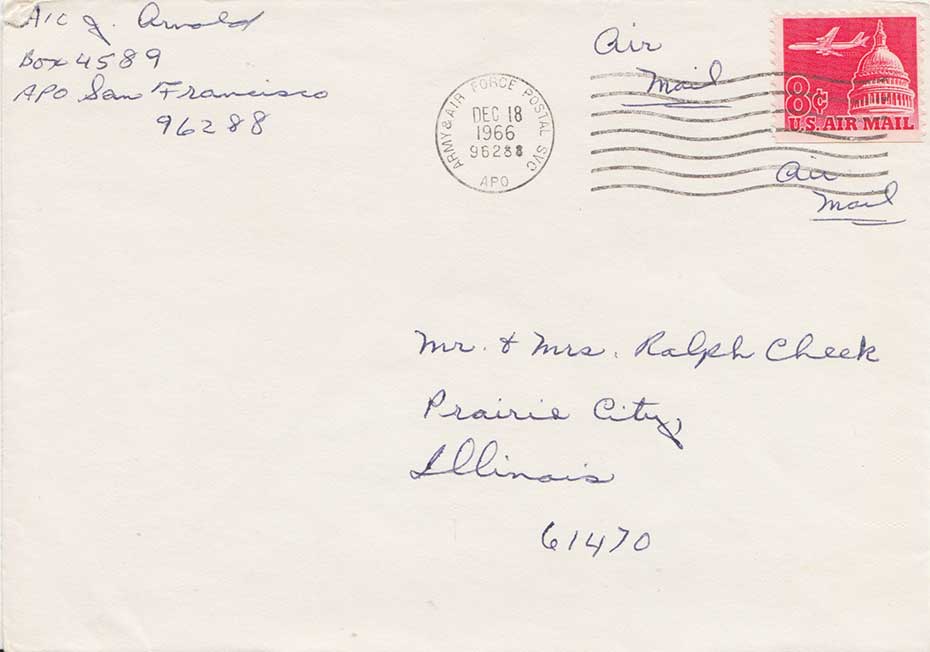 A/C J. Arnold
Box 4589
APO San Francisco
96288
Air
Mail
ARMY & AIR FORCE POSTAL SVC
DEC 18
1966
96288
APO
8¢
U.S. AIR MAIL
Air
Mail
Mr. & Mrs. Ralph Cheek
Prairie City,
Illinois
61470